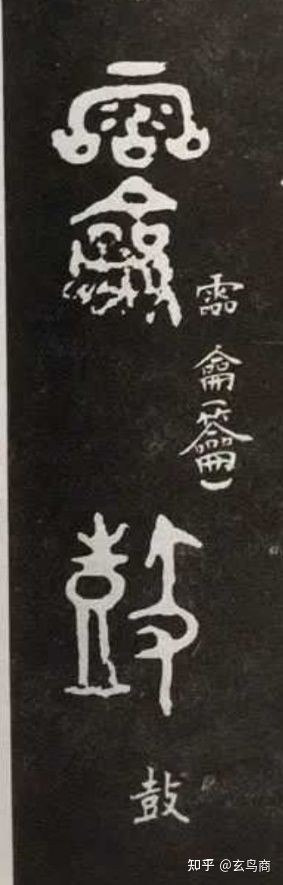 霝 龠(籥)
鼓
知乎 @玄鸟商